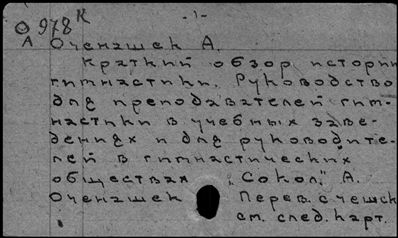 - 1 -
О 978 К
А Оченашек А.
Краткий обзор истории
гимнастики. Руководство
для преподавателей гим-
настики в учебных заве-
дениях и для руководите-
лей в гимнастических
обществах "Сокол". А.
Оченашек Перев. с чешск.
см. след. карт.